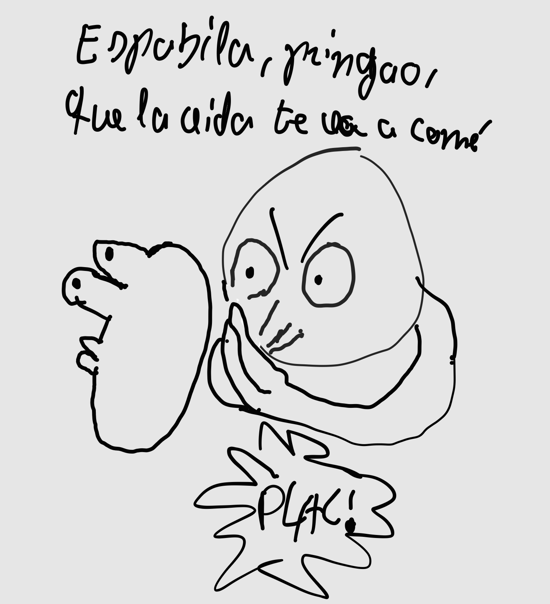 Espabila, pringao,
que la vida te va a comé
PLAC!